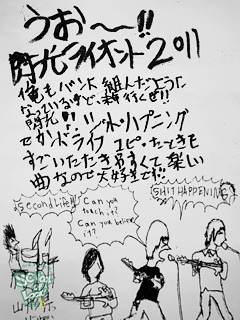 うお〜!!
閃光ライオット2011
俺もバンド組んだどうに
なっているけど、
行くぜ!!
閃光!! シットハプニング
セカンドライフ コピーしたときも
すごいたたきやすくて楽しい
曲なので大好きです!!
Second Life!!
Can you
teach it?
Can you believe
it?
SHIT HAPPENING